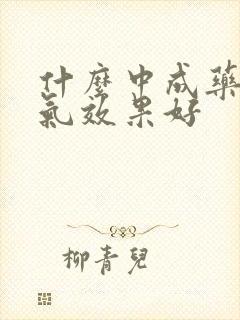 什麼中成藥
氣效果好
柳青兒